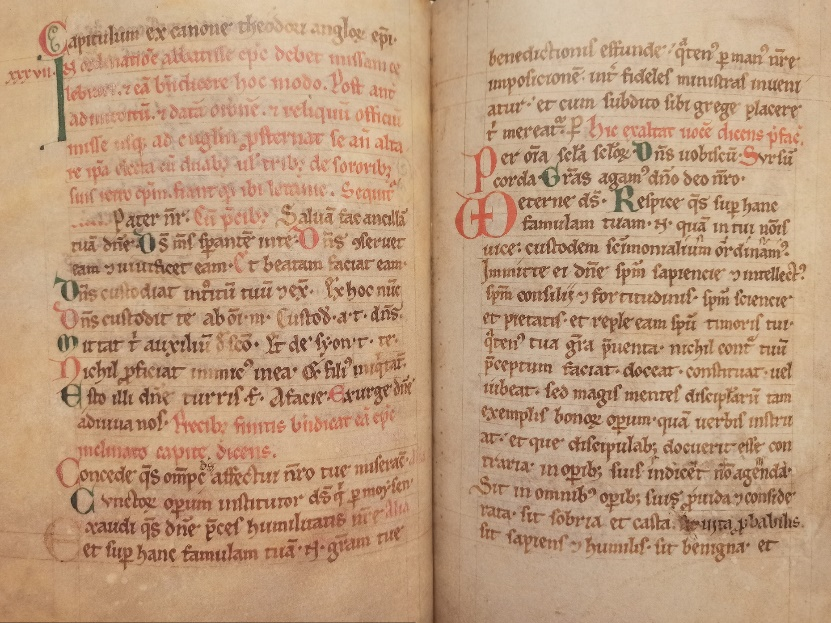 Capitulum ex canone theodori anglor epi.
xxxvii.
In ordinatiōe abbatisse epc debet missam ce
lebrare. ⁊ eā bn̄dicere hoc modo. Post ant
ad introitū. ⁊ datā orōnē. ⁊ reliquū officiū
misse usq; ad euglm psternat se an̄ alta
re ipa electa cū duab; ul' trib; de sororib;
suis retro epm. fiant q; ibi letanie. Sequit'
Pater nr̄. Cū p̄cib;. Saluā fac ancillā
tuā dn̄e. Ds̄ ms̄ sperantē in te. Dn̄s conseruet
eam ⁊ uiuificet eam. Et beatam faciat eam.
Dn̄s custodiat introitū tuū ⁊ ex. Ex hoc nūc
Dn̄s custodit te ab oī. m. Custod. a. t. dn̄s.
Mittat t' auxiliū d' scō. Et de syon. t. te.
Nichil p̄ficiat inimic' in ea. Et fili' iniq̄tat̄.
Esto illi dn̄e turris f. A facie. Exurge dn̄e
adiuua nos. Precib; finitis bn̄dicat eā epc
inclinato capite. dicens.
Concede q̄s omp̄c ds̄ affectui nr̄o tue miserac̄.
Cunctor operum institutor ds̄ q̄ p moysen
Exaudi q̄s dn̄e p̄ces humilitatis nr̄e Alia
et sup hane famulam tuā. N. gr̄am tue
benedictionis effunde. q̄ten' p man' nr̄e
imposicionē. int' fideles ministras inueni
atur. et cum subdito sibi grege placere
t' mereat'. P. Hic exaltat uocē dicens p̄fac̄.
Per om̄ia sclā sclōr. Dn̄s uobiscū. Sursū
corda. Grās agam' dn̄o deo nr̄o.
eterne ds̄. Respice q̄s sup hane
famulam tuam. N. quā in tui nōis
uice: custodem sc̄imonialium ordinam'.
Immitte ei dn̄e spm̄ sapiencie ⁊ intellect'.
spm̄ consilii ⁊ fortitudinis. spm̄ sciencie
et pietatis. et reple eam spū timoris tui.
q̄ten' tua gr̄a p̄uenta. nichil cont̄ tuū
p̄ceptum faciat. doceat. constituat. uel
iubeat. sed magis mentes discipl̄arū tam
exemplis bonor operum. quā uerbis instru
at. et que discipulab; docuerit esse con
traria. in operib; suis indicet nō agenda.
Sit in omnib' operib; suis p̄uida ⁊ conside
rata. sit sobria et casta. et ista p̄babilis.
sit sapiens ⁊ humilis. sit benigna. et